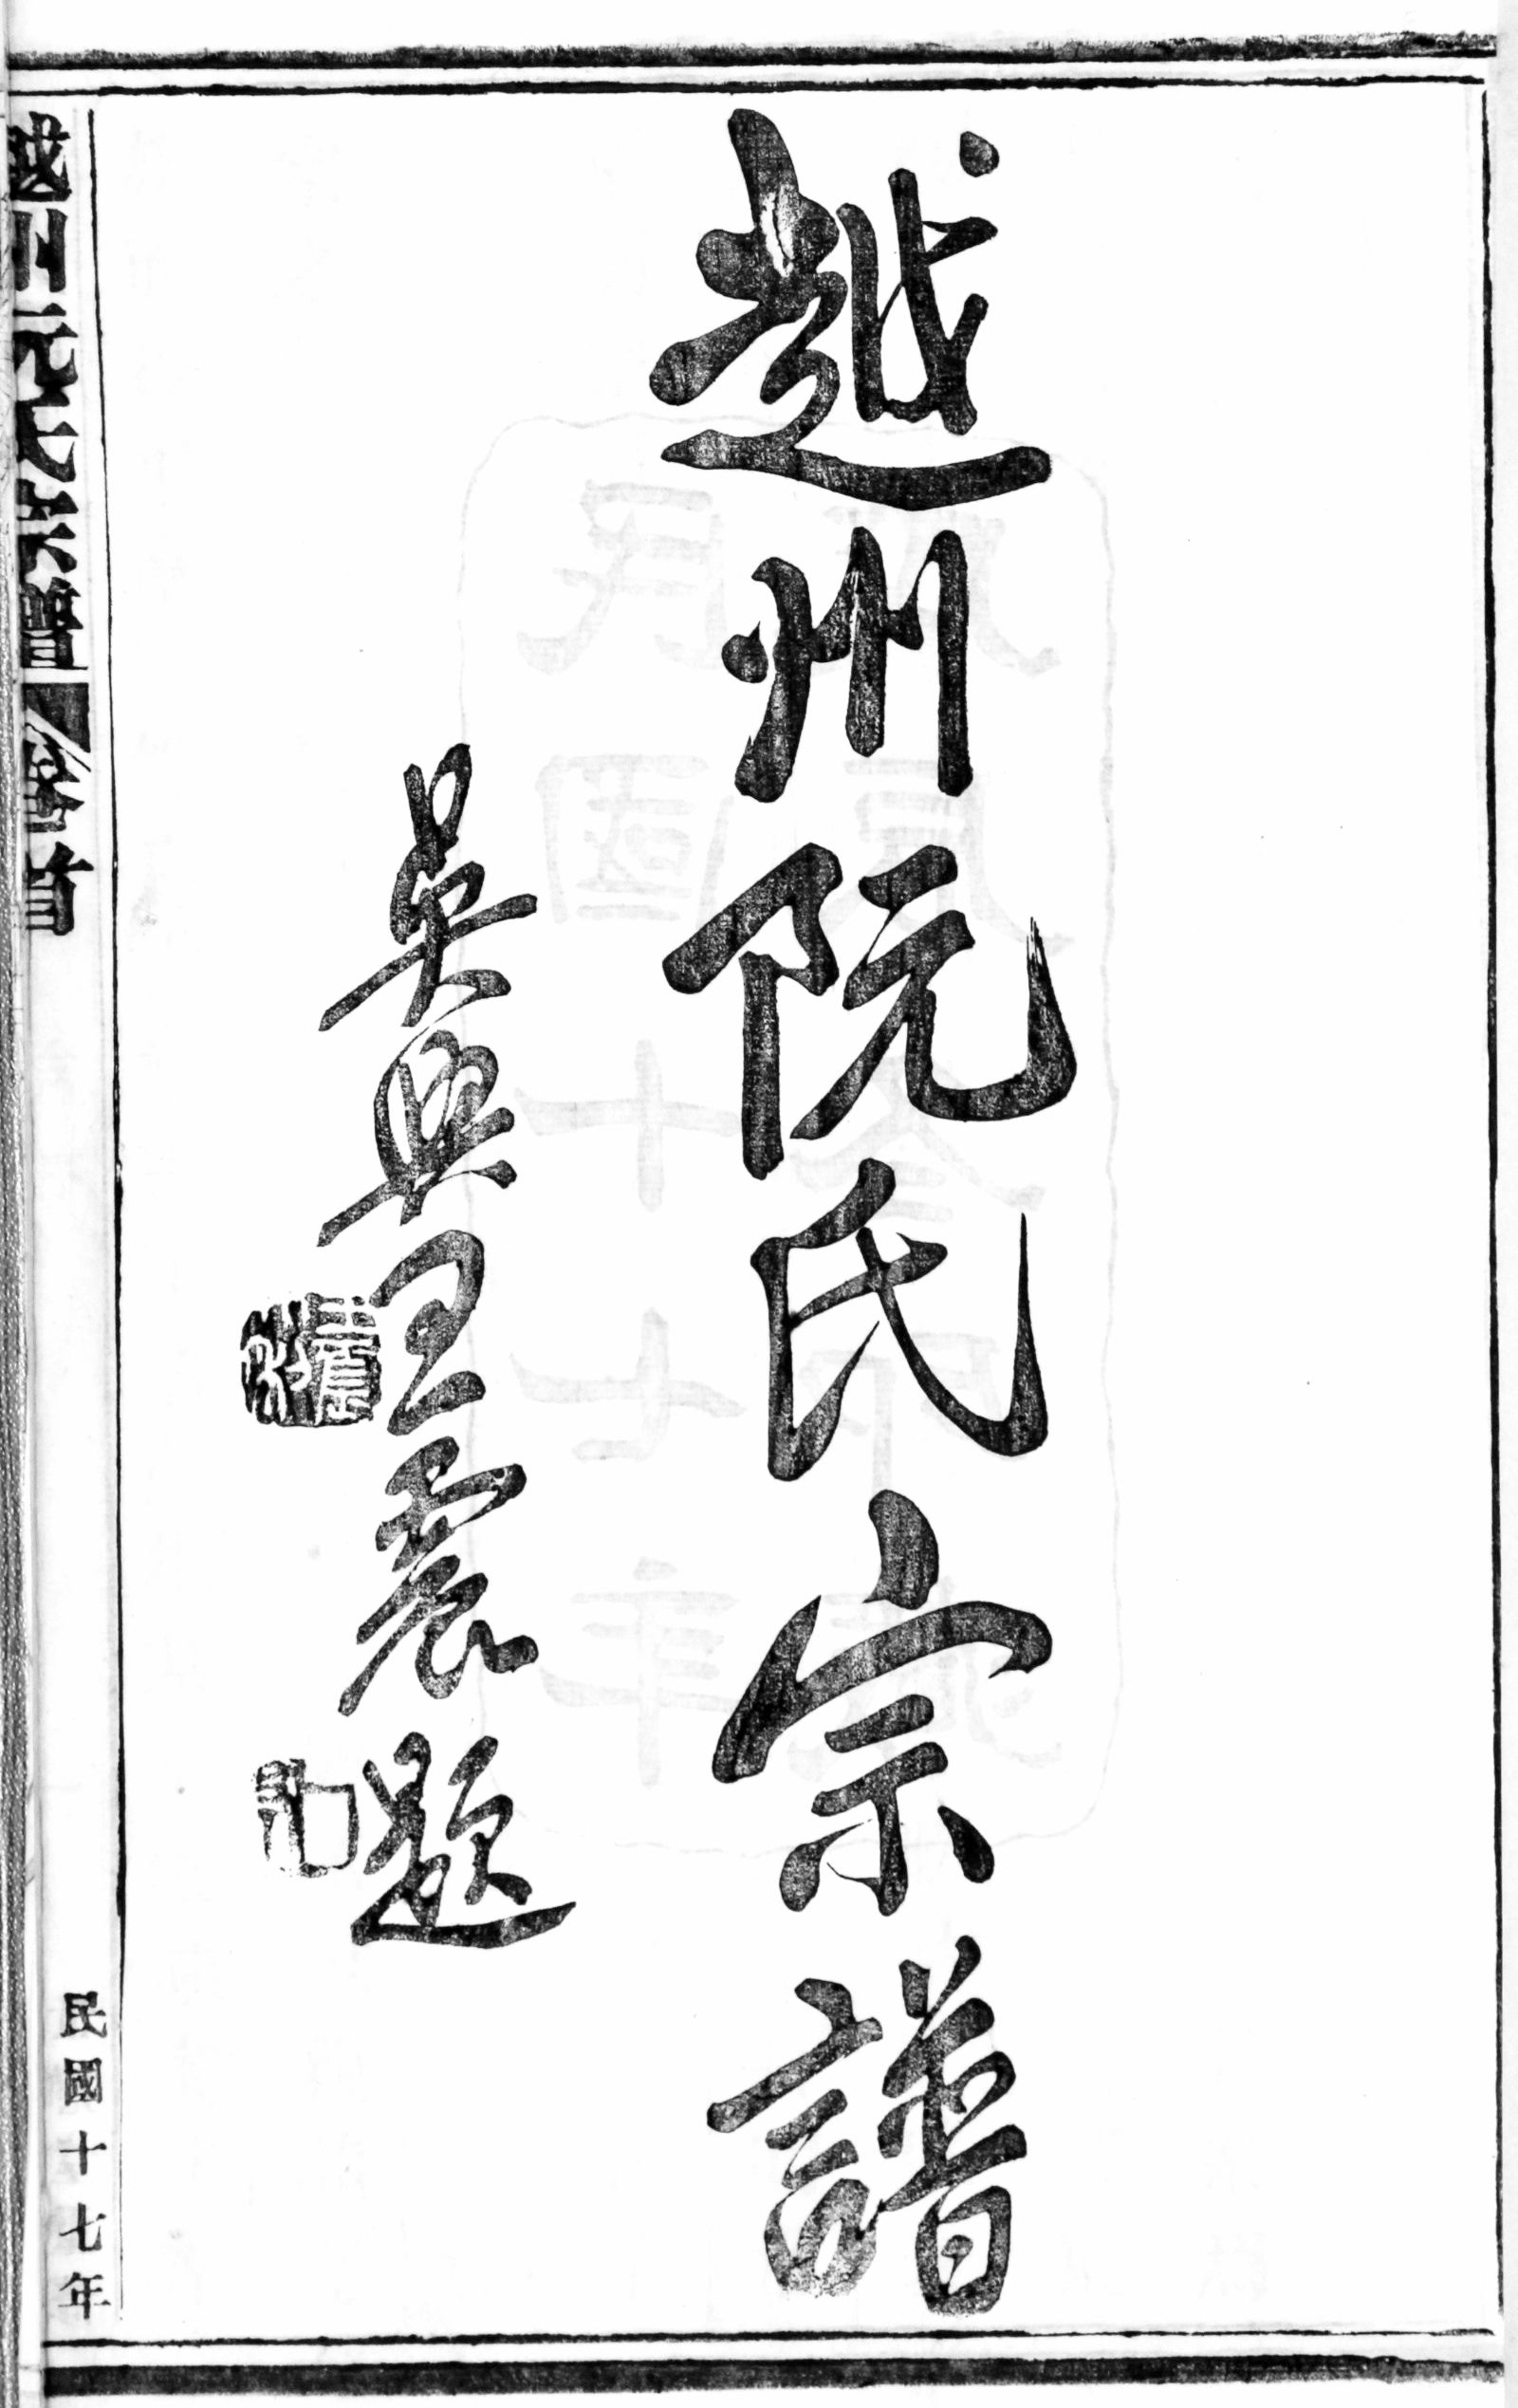 越州阮氏宗譜
吳興王震題
越州阮氏宗譜 卷首
民國十七年